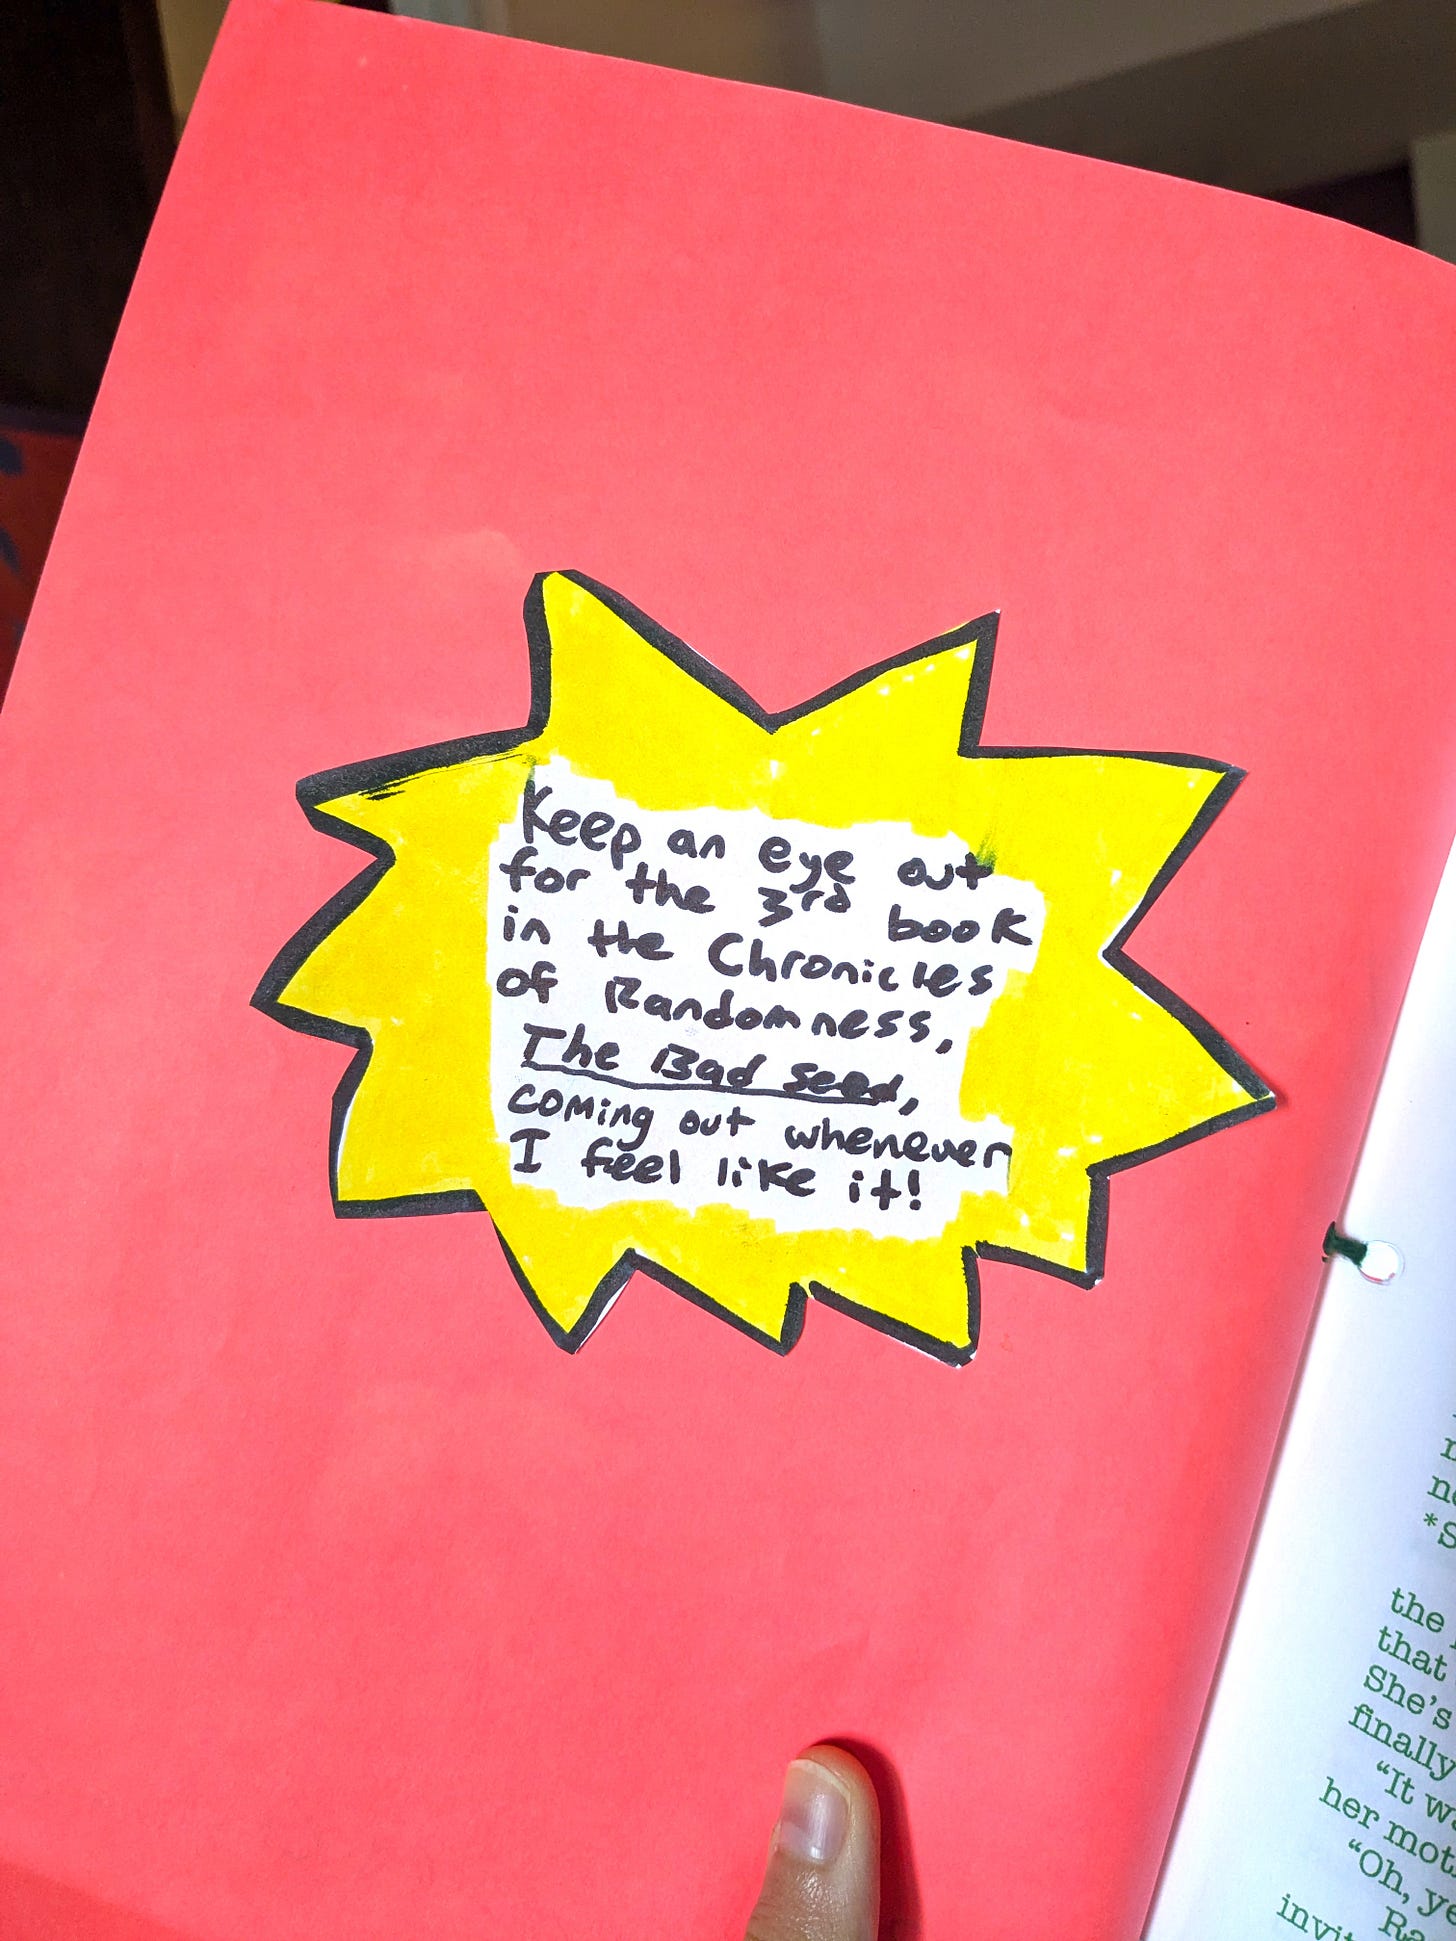 Keep an eye out
for the 3rd book
in the Chronicles
of Randomness,
The Bad Seed,
coming out whenever
I feel like it!
*S
the
that
She's
finally
"It
her
"Oh,